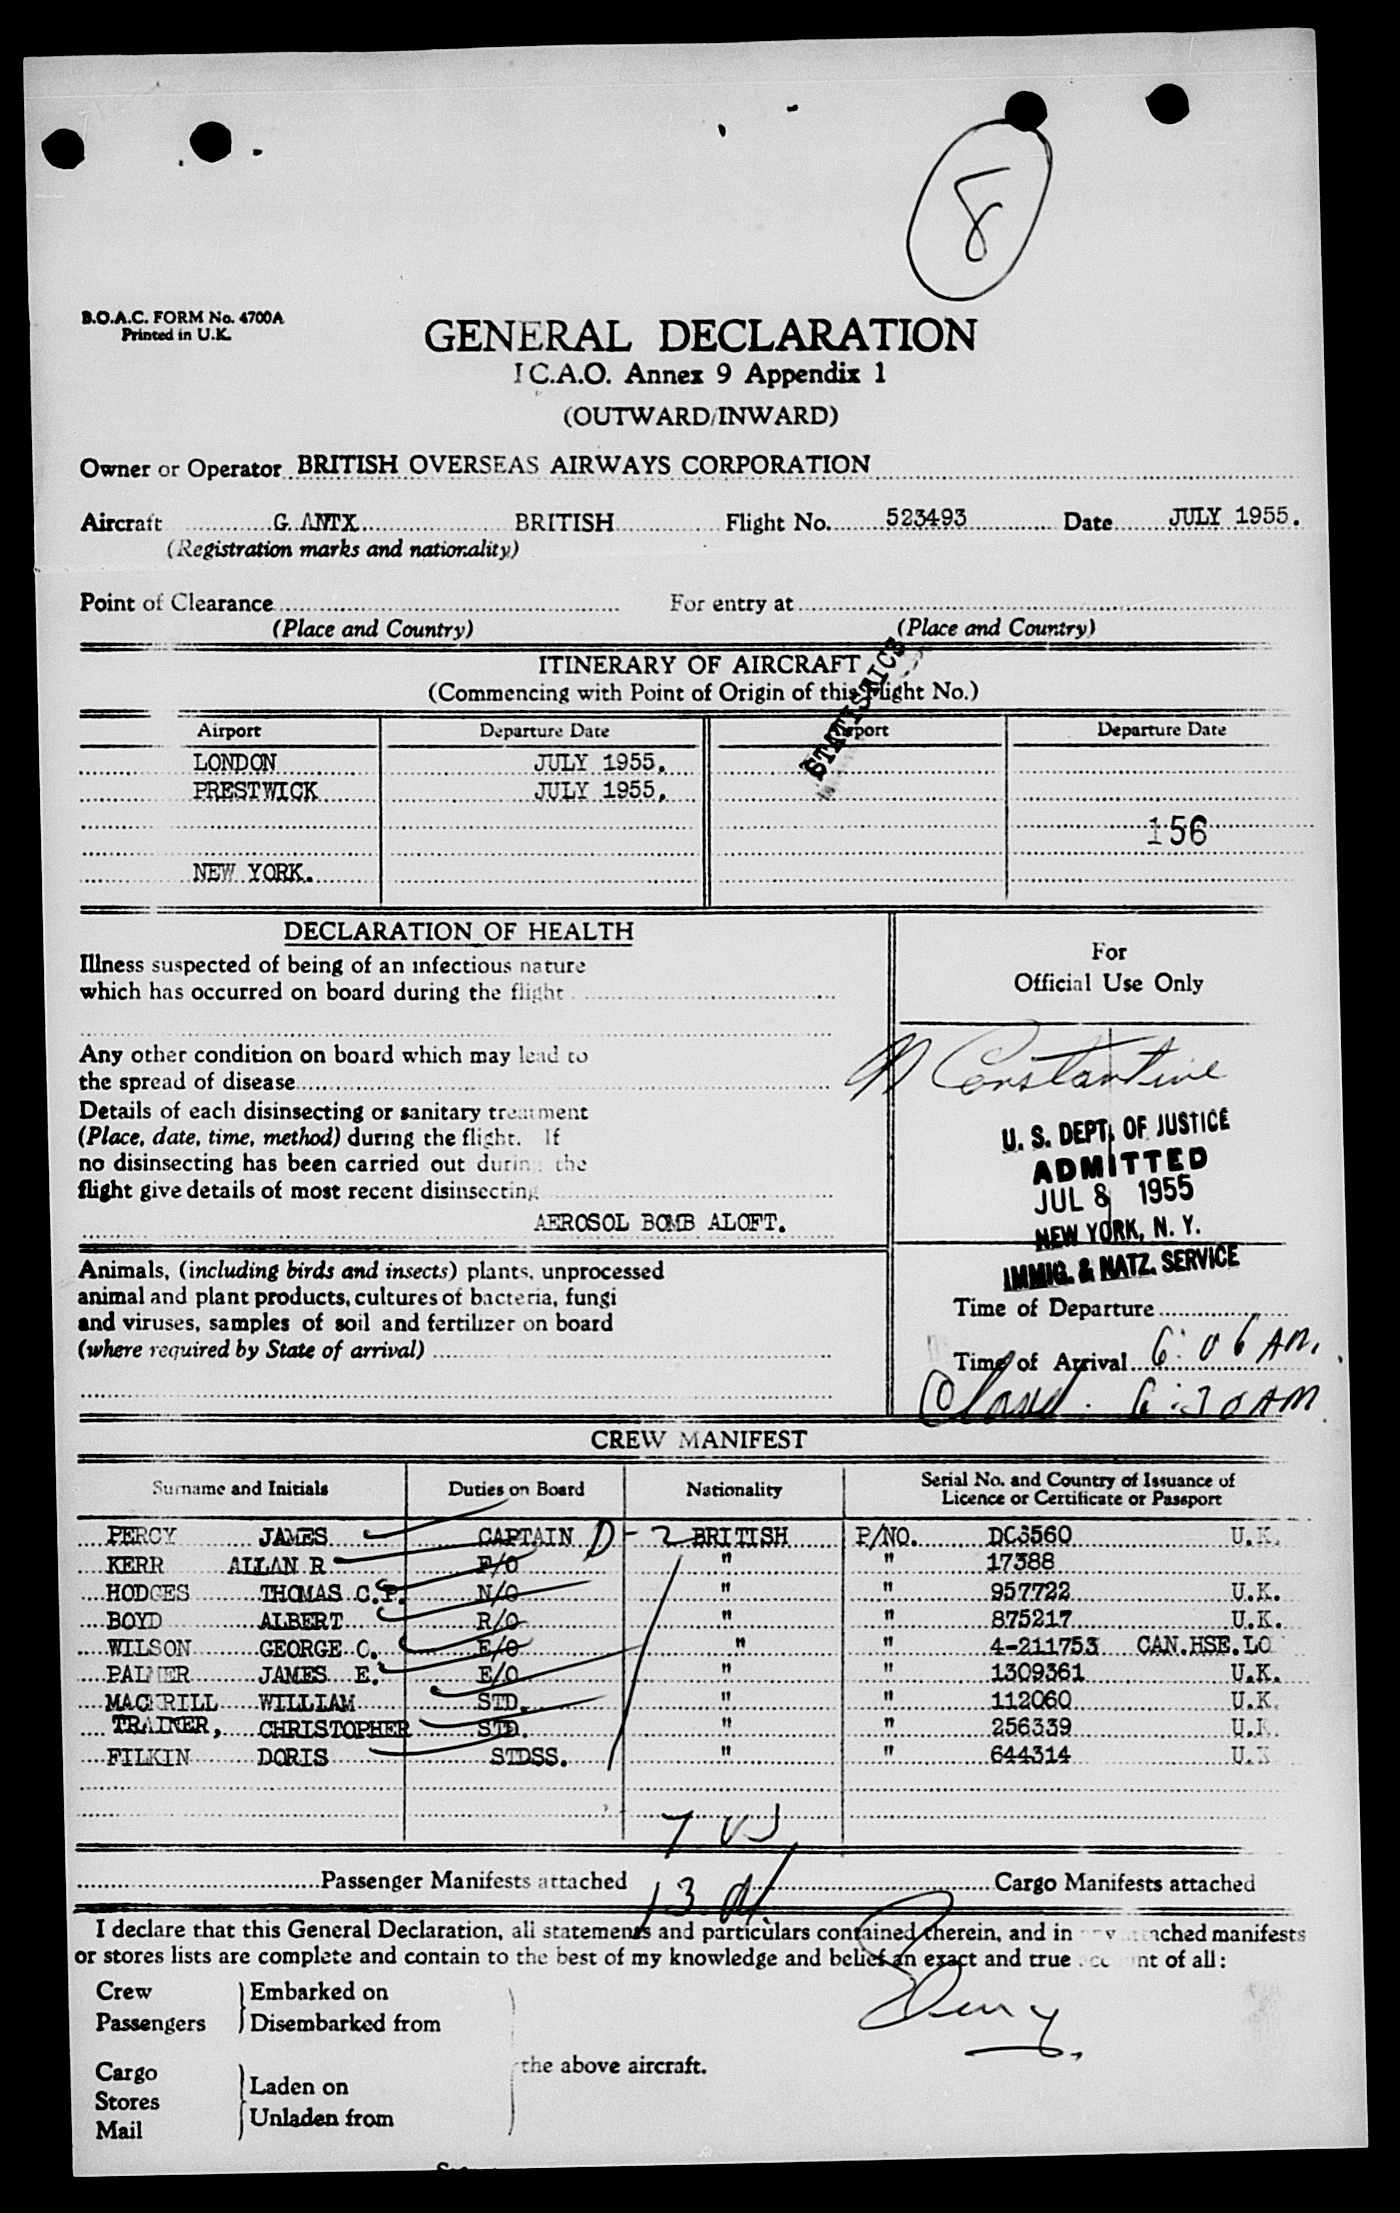 8
B.O.A.C. FORM No. 4700A
Printed in U.K.
GENERAL DECLARATION
I C.A.O. Annex 9 Appendix 1
(OUTWARD/INWARD)
Owner or Operator BRITISH OVERSEAS AIRWAYS CORPORATION
Aircraft G. ANTX BRITISH Flight No. 523493 Date JULY 1955.
(Registration marks and nationality)
Point of Clearance For entry at
(Place and Country) (Place and Country)
STATISTICS
ITINERARY OF AIRCRAFT
(Commencing with Point of Origin of this Flight No.)
Airport Departure Date Airport Departure Date
LONDON JULY 1955.
PRESTWICK JULY 1955.
156
NEW YORK.
DECLARATION OF HEALTH
Illness suspected of being of an infectious nature
which has occurred on board during the flight
Any other condition on board which may lead to
the spread of disease
Details of each disinsecting or sanitary treatment
(Place, date, time, method) during the flight. If
no disinsecting has been carried out during the
flight give details of most recent disinsecting
AEROSOL BOMB ALOFT.
Animals, (including birds and insects) plants, unprocessed
animal and plant products, cultures of bacteria, fungi
and viruses, samples of soil and fertilizer on board
(where required by State of arrival)
For
Official Use Only
Constantine
U. S. DEPT. OF JUSTICE
ADMITTED
JUL 8 1955
NEW YORK, N. Y.
IMMIG. & NATZ. SERVICE
Time of Departure
Time of Arrival 6:06 AM.
6:30 AM
CREW MANIFEST
Surname and Initials Duties on Board Nationality Serial No. and Country of Issuance of
Licence or Certificate or Passport
PERCY JAMES CAPTAIN D-2 BRITISH P/NO. DC6560 U.K.
KERR ALLAN R F/O " " 17388
HODGES THOMAS C.P. N/O " " 957722 U.K.
BOYD ALBERT R/O " " 875217 U.K.
WILSON GEORGE C. E/O " " 4-211753 CAN.HSE.LO
PALMER JAMES E. E/O " " 1309361 U.K.
MACKRILL WILLIAM STD. " " 112060 U.K.
TRAINER, CHRISTOPHER STD. " " 256339 U.K.
FILKIN DORIS STDSS. " " 644314 U.K
7 US
13 al
Passenger Manifests attached Cargo Manifests attached
I declare that this General Declaration, all statements and particulars contained therein, and in any attached manifests
or stores lists are complete and contain to the best of my knowledge and belief an exact and true account of all:
Crew Embarked on
Passengers Disembarked from
Cargo
Stores Laden on
Mail Unladen from
the above aircraft.
Percy